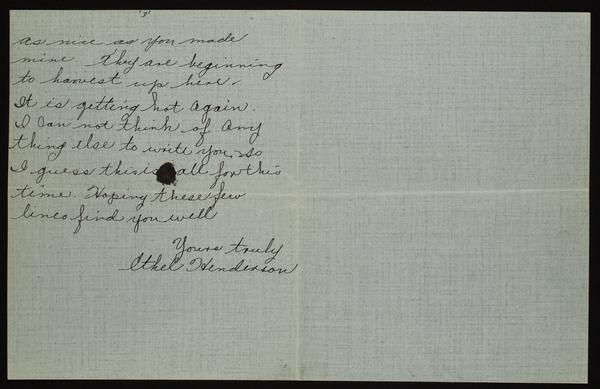 "3"
as nice as you made
mine. They are beginning
to harvest up here.
It is getting hot again.
I can not think of any
thing else to write you, so
I guess this is all for this
time. Hoping these few
lines find you well
Yours truly
Ethel Henderson